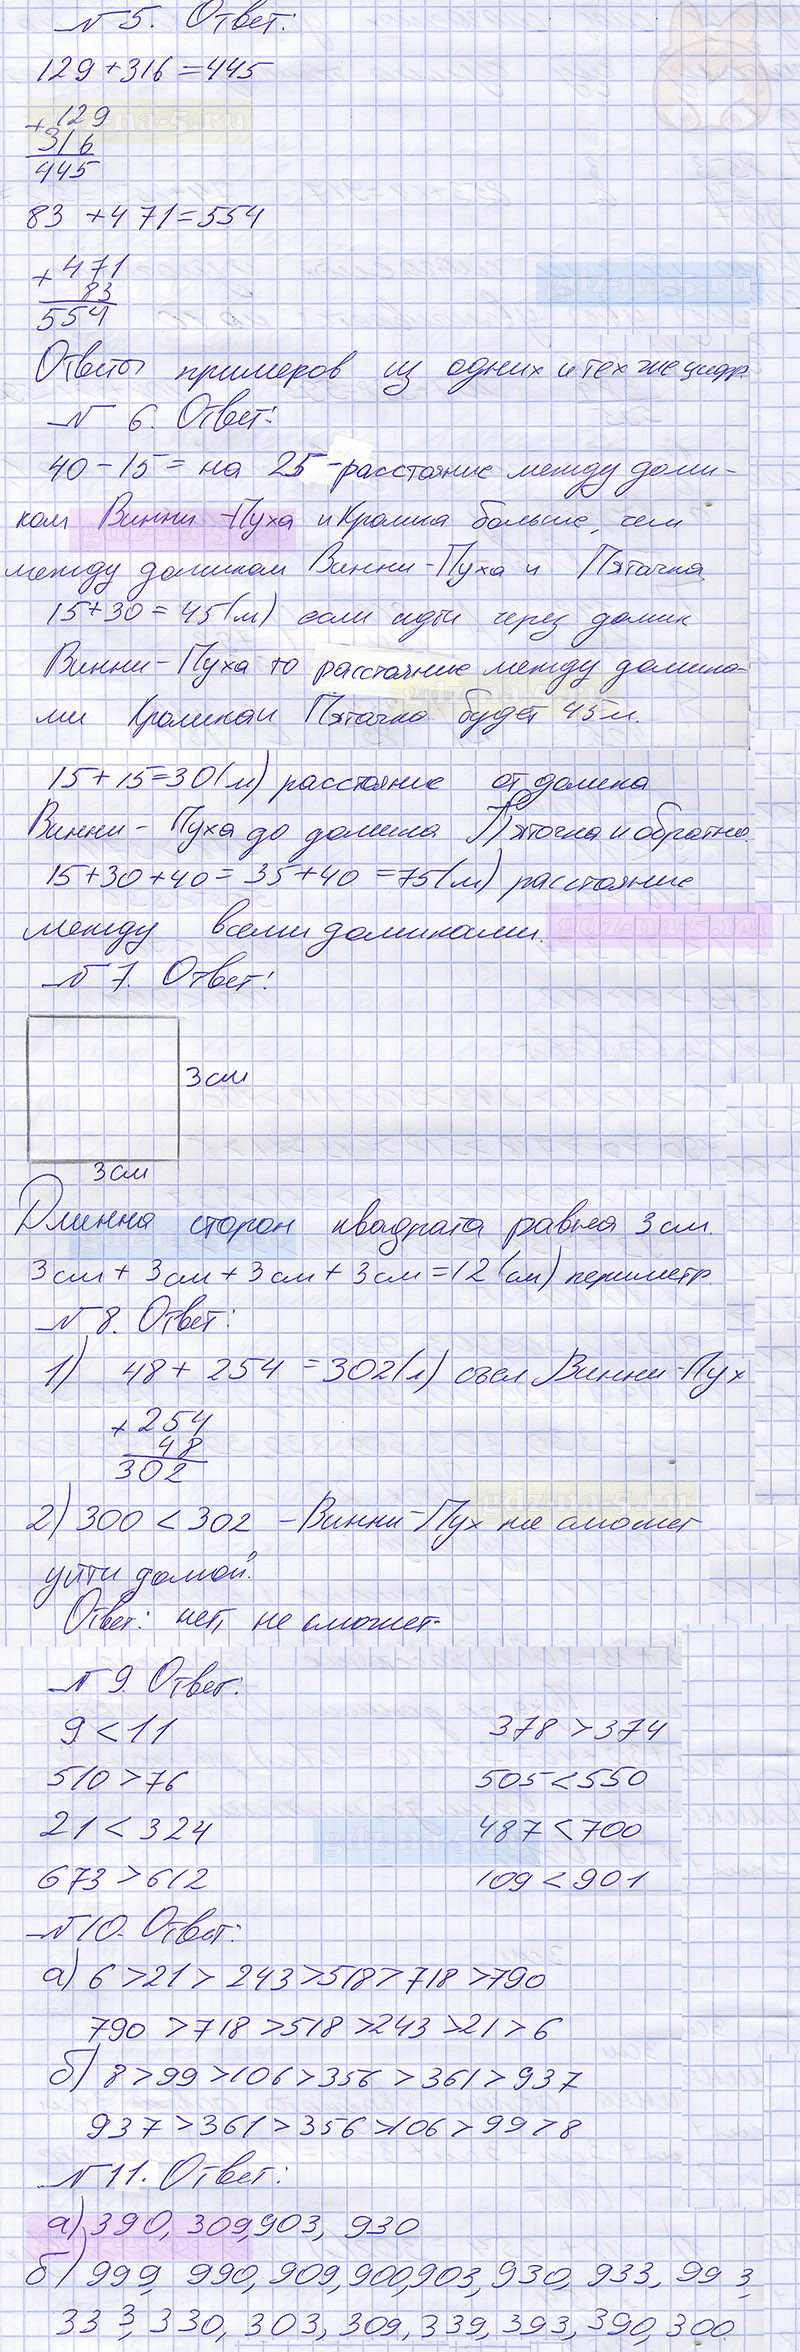 № 5. Ответ:
129+316=445
+129
316
445
83 +471=554
+471
83
554
Ответы примеров из одних и тех же цифр.
№ 6. Ответ:
40-15= на 25-расстояние между доми-
ком Винни-Пуха и Кролика больше, чем
между домиком Винни-Пуха и Пятачка
15+30=45(м) если идти через домик
Винни-Пуха то расстояние между домика-
ми Кролика и Пятачка будет 45м.
15+15=30(м) расстояние от домика
Винни-Пуха до домика Пятачка и обратно.
15+30+40=35+40=75(м) расстояние
между всеми домиками.
№ 7. Ответ:
3см
3см
Длинна сторон квадрата равна 3см.
3см+3см+3см+3см=12(см) периметр
№ 8. Ответ:
1) 48+254=302(л) съел Винни-Пух
+254
48
302
2) 300<302 -Винни-Пух не сможет
уйти домой.
Ответ: нет, не сможет.
№ 9. Ответ:
9<11 378>374
510>76 505<550
21<324 487<700
673>612 109<901
№10. Ответ:
а) 6>21>243>518>718>790
790>718>518>243>21>6
б) 8>99>106>356>361>937
937>361>356>106>99>8
№11. Ответ:
а) 390, 309, 903, 930
б) 999, 990, 909, 900, 903, 930, 933, 993,
333, 330, 303, 309, 339, 393, 390, 300